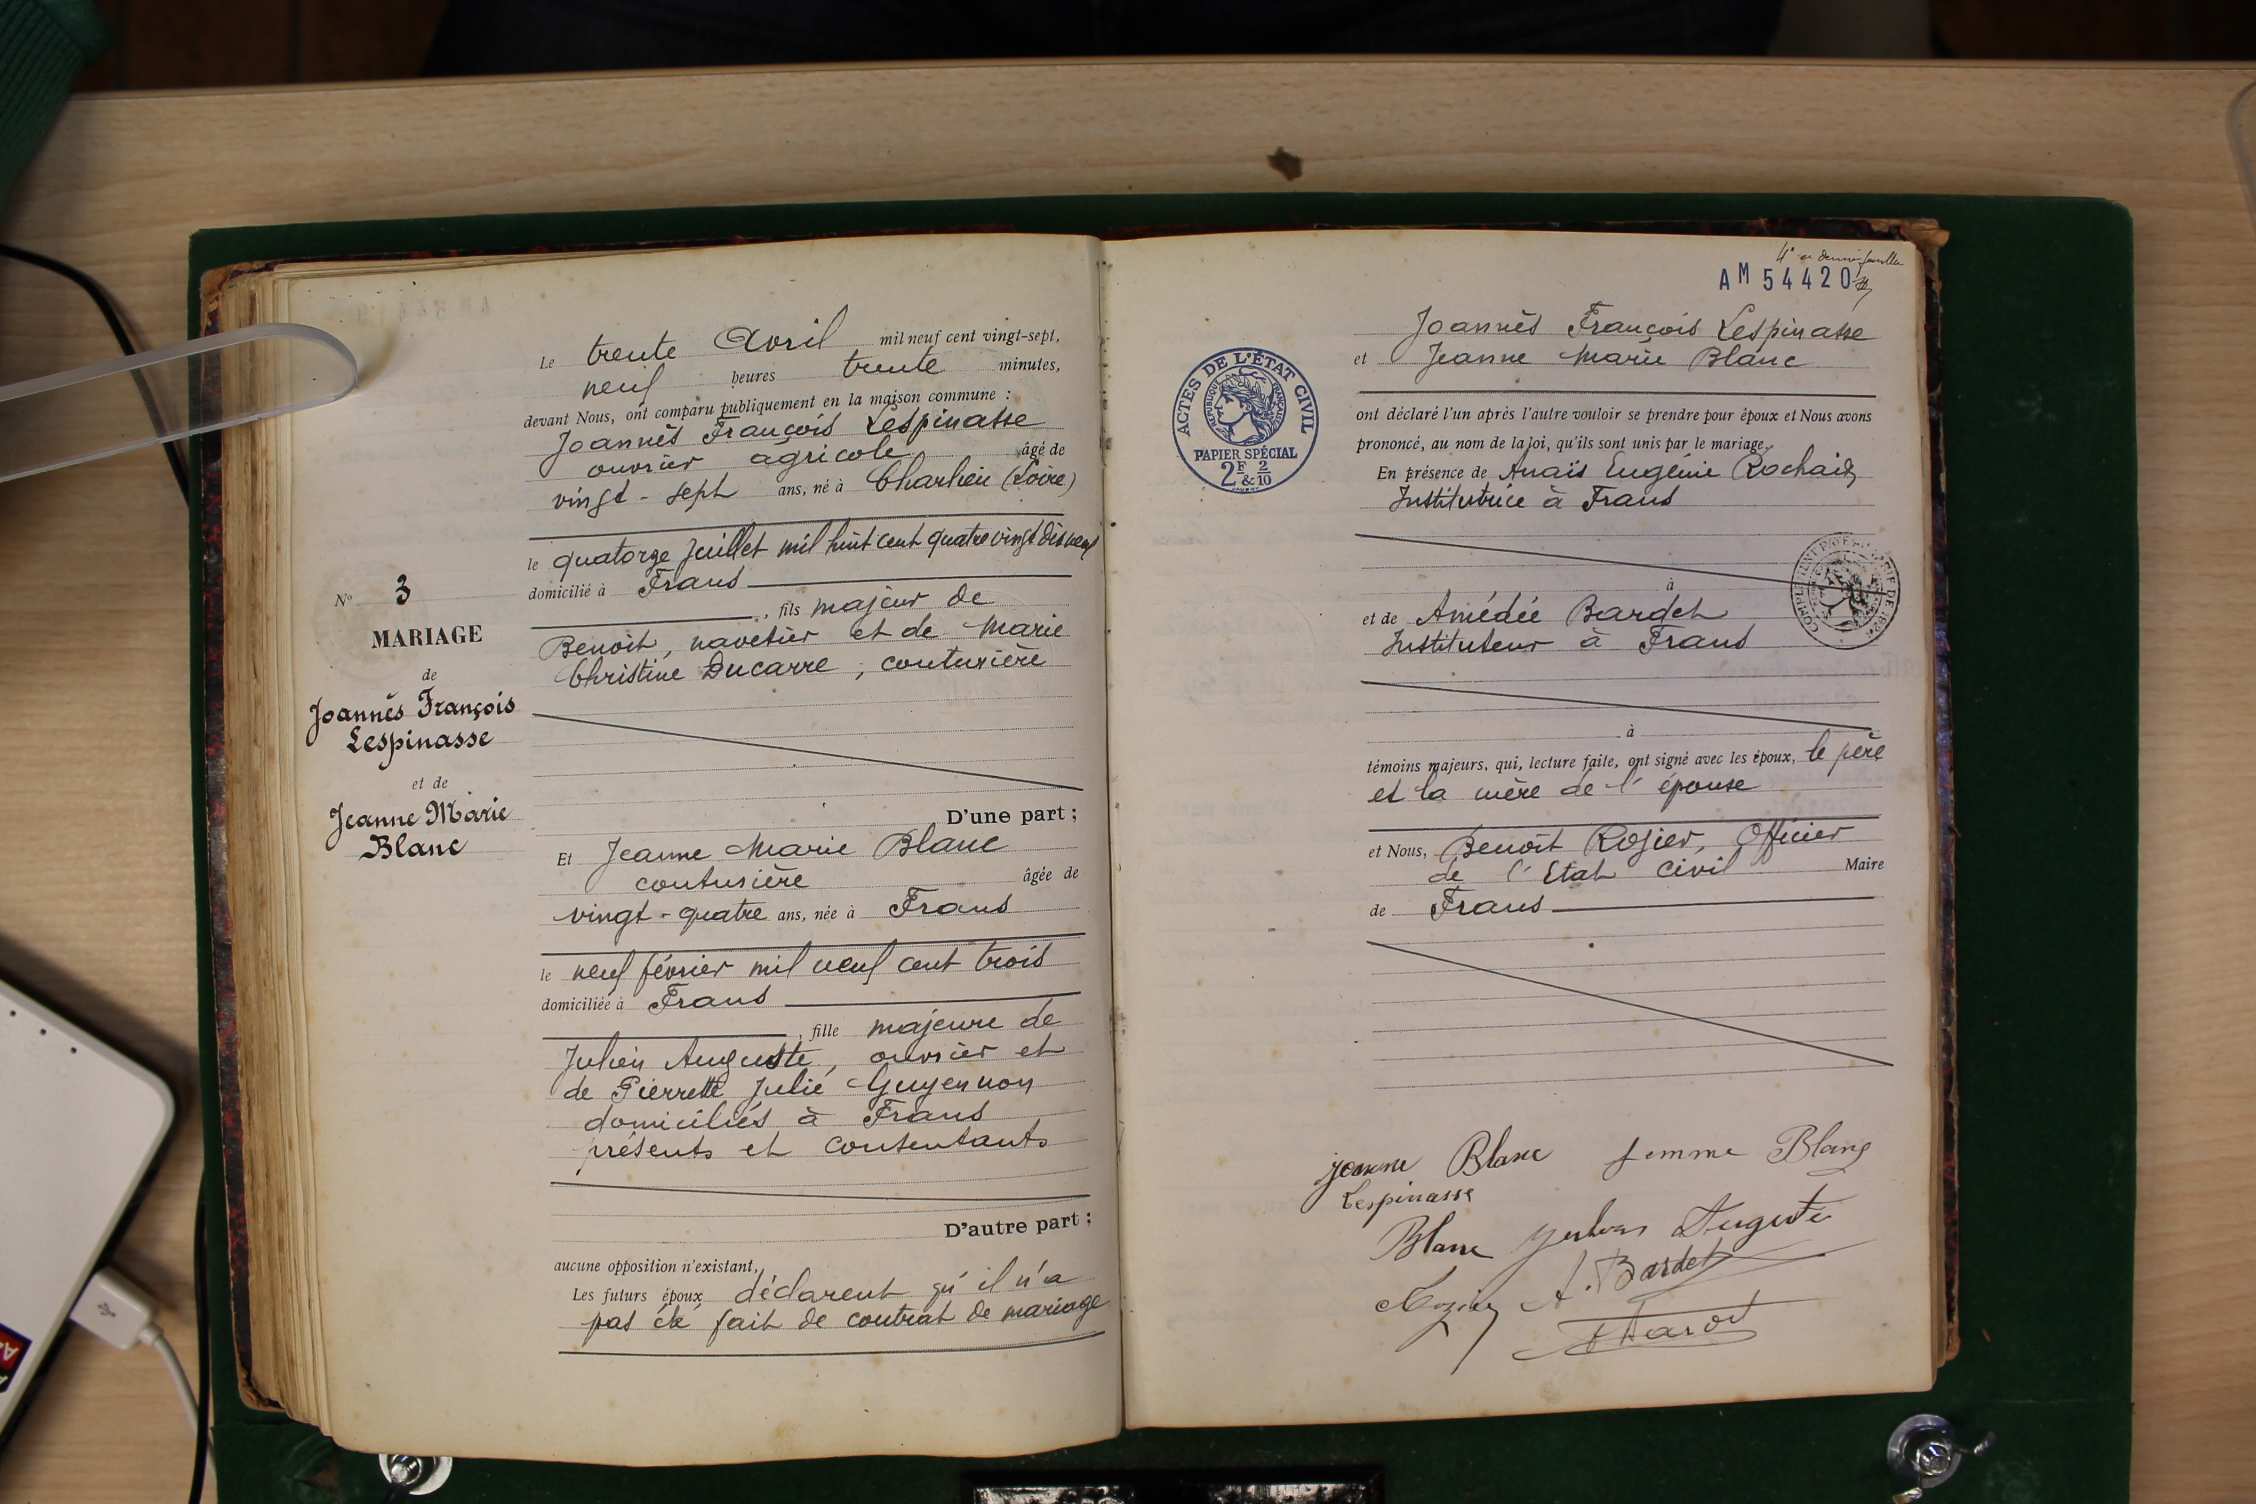 Le trente Avril mil neuf cent vingt-sept,
neuf heures trente minutes,
devant Nous, ont comparu publiquement en la maison commune :
Joannès François Lespinasse
ouvrier agricole âgé de
vingt-sept ans, né à Charlieu (Loire)
le quatorze juillet mil huit cent quatre vingt dix neuf
domicilié à Frans
, fils majeur de
Benoit, navetier et de Marie
Christine Ducarre, couturière
D'une part ;
Et Jeanne Marie Blanc
couturière âgée de
vingt-quatre ans, née à Frans
le neuf février mil neuf cent trois
domiciliée à Frans
, fille majeure de
Julien Auguste, ouvrier et
de Pierrette Julie Guyennon
domiciliés à Frans
présents et consentants
D'autre part ;
aucune opposition n'existant,
Les futurs époux déclarent qu'il n'a
pas été fait de contrat de mariage
No 3
MARIAGE
de
Joannès François
Lespinasse
et de
Jeanne Marie
Blanc
AM 54420
Joannès François Lespinasse
et Jeanne Marie Blanc
ACTES DE L'ÉTAT CIVIL
RÉPUBLIQUE FRANÇAISE
PAPIER SPÉCIAL
2F & 2/10
ont déclaré l'un après l'autre vouloir se prendre pour époux et Nous avons
prononcé, au nom de la loi, qu'ils sont unis par le mariage.
En présence de Anaïs Eugénie Rochaix
Institutrice à Frans
à
et de Amédée Bardet
Instituteur à Frans
à
témoins majeurs, qui, lecture faite, ont signé avec les époux, le père
et la mère de l'épouse
et Nous, Benoit Rozier, Officier
de l'Etat Civil Maire
de Frans
Jeanne Blanc femme Blanc
Lespinasse
Blanc Julien Auguste
Rozier A. Bardet